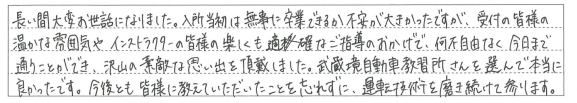 長い間大変お世話になりました。入所当初は無事に卒業できるか不安が大きかったですが、受付の皆様の
温かな雰囲気や インストラクターの皆様の楽しくも適確なご指導のおかげで、何不自由なく今日まで
通うことができ、沢山の素敵な思い出を頂戴しました。武蔵境自動車教習所さんを選んで本当に
良かったです。今後とも皆様に教えていただいたことを忘れずに、運転技術を磨き続けて参ります。